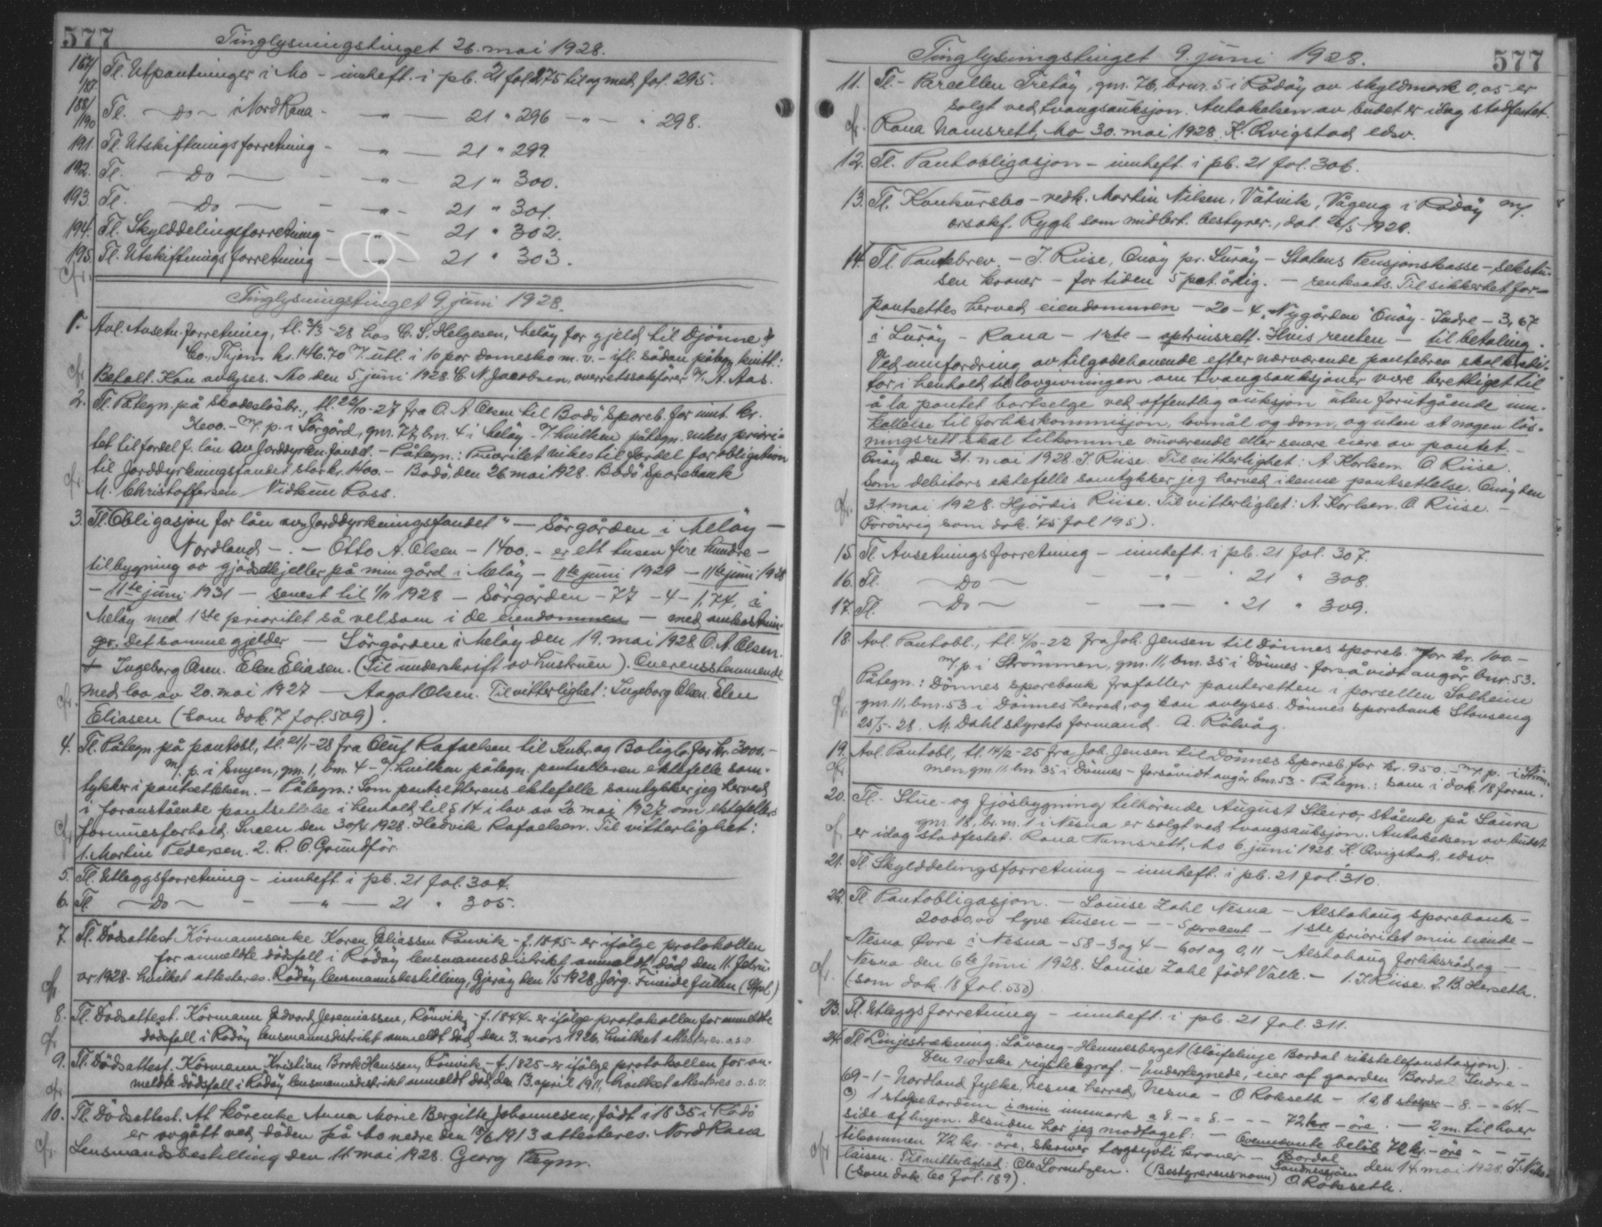 577
Tinglysningstinget 26. mai 1928.
167/187 Tl. Utpantninger i Mo - innheft. i pb. 21 fol. 275 til og med fol. 295.
188/190 Tl. - Do - i Nord Rana - " - 21 " 296 - " - " 298.
191. Tl. Utskiftningsforretning - " - 21 " 299.
192. Tl. - Do - - " - 21 " 300.
193. Tl. - Do - - " - 21 " 301.
194. Tl. Skylddelingsforretning - " - 21 " 302.
195. Tl. Utskiftningsforretning - " - 21 " 303.
Tinglysningstinget 9 juni 1928.
1. Avl. Ausetn.forretning, tl. 2/3-28 hos C. S. Helgesen, Meløy for gjeld til Djønne &
Co., Thjem kr. 146.70 m/ utl. i 10 par domesko m. v. - ifl. sådan påtegn. kvitt.:
Betalt. Kan avlyses. Mo den 5 juni 1928. C. N. Jacobsen, overretssakfører v/ A. Aas.
2. Tl. Påtegn. på skadesløsbr., tl. 22/10-27 fra O. A. Olsen til Bodø Spareb. for innt. kr.
2000.- m/ p. i Sørgård, gnr. 77, bnr. 4 i Meløy - v/ hvilken påtegn. vikes priori-
tet til fordel f. lån av Jorddyrkn.fondet. - Påtegn.: Prioritet vikes til fordel for obligation
til Jorddyrkningsfondet stor kr. 1400.- Bodø, den 26 mai 1928. Bodø Sparebank
M. Christoffersen Vidkunn Rass.
3. Tl. Obligasjon for lån av „Jorddyrkningsfondet" - Sørgården i Meløy -
Nordland - . - Otto A. Olsen - 1400.- er ett tusen fire hundre -
tilbygning av gjødselkjeller på min gård i Meløy - 11te juni 1929 - 11te juni 1928
- 11te juni 1931 - senest til 1/11 1928 - Sørgården - 77 - 4 - 1,74, i
Meløy med 1ste prioritet så vel som i de eiendommen - med omkostnin-
ger. det samme gjelder - Sørgården i Meløy den 19. mai 1928 O. A. Olsen.
Ingeborg Olsen. Elen Eliasen. (Til underskrift av hustruen). Overensstemmende
med lov av 20. mai 1927 - Aagot Olsen. Til vitterlighet: Ingeborg Olsen Elen
Eliasen (som dok. 7 fol. 509).
4. Tl. Påtegn. på pantobl., tl. 21/1-28 fra Oluf Rafaelsen til Småbr. og Boligb. for kr. 3000.-
m/ p. i Engen, gnr. 1, bnr. 4 - v/ hvilken påtegn. pantsetteren ektefelle sam-
tykker i pantsettelsen. - Påtegn.: Som pantsetterens ektefelle samtykker jeg herved
i foranstående pantsettelse i henhold til § 14 i lov av 20 mai 1927 om ektefellers
formuesforhold, Sneen den 30/4 1928. Hedvik Rafaelsen. Til vitterlighet:
1. Martin Pedersen. 2. R. O. Grundfør.
5. Tl. Utleggsforretning - innheft. i pb. 21 fol. 304.
6. Tl. - Do - - " - 21 " 305.
7. Tl. Dødsattest. Kårmannsenke Karen Eliassen Rønvik - f. 1845 - er ifølge protokollen
for anmeldte dødsfall i Rødøy lensmannsdistrikt anmeldt død den 11. febru-
ar 1928 - hvilket attesteres. Rødøy lensmannsbestilling, Gjerøy den 1/5 1928, Jørg. Fmeide fullm. (Stpl.)
8. Tl. Dødsattest. Kårmann Edvard Jeremiassen, Rønvik, - f. 1844 - er ifølge protokollen for anmeldte
dødsfall i Rødøy lensmannsdistrikt anmeldt død den 3. mars 1926, hvilket attesteres. o.s.v.
9. Tl. Dødsattest. Kårmann Kristian Brok Hanssen, Rønvik - f. 1825 - er ifølge protokollen for an-
meldte dødsfall i Rødøy lensmannsdistrikt anmeldt død den 13. april 1911, hvilket attesteres o.s.v.
10. Tl. Dødsattest. At kårenke Anna Marie Bergitte Johannesen, født i 1835 i Rødø
er avgått ved døden på Mo nedre den 15/6 1913 attesteres. Nord Rana
Lensmandsbestilling den 11 mai 1928. Georg Pagm.
Tinglysningstinget 9. juni 1928.
577
11. Tl. - Parcellen Tretøy, gnr. 76, bnr. 5 i Rødøy av skyldmark 0,05 er
solgt ved tvangsauksjon. Antakelsen av budet er idag stadfestet.
Rana Namsrett, Mo 30. mai 1928. K. Qvigstad, edsv.
12. Tl. Pantobligasjon - innheft. i pb. 21 fol. 306.
13. Tl. Konkursbo - vedk. Martin Nilsen, Våtvik, Vågeng i Rødøy m/
orsakf. Rygh som midlert. bestyrer, dat. 26/5-1928.
14. Tl. Pantebrev. - J. Riise, Onøy pr. Lurøy - Statens Pensjonskasse - sekstu-
sen kroner - for tiden 5 pct. årlig. - rentesats. Til sikkerhet for-
pantsettes herved eiendommen - 20 - 4, Nygården Onøy - Indre - 3,67
i Lurøy - Rana - 1ste - oprinsrett. Hvis renten - til betaling.
Ved innfordring av tilgodehavende efter nærværende pantebrev skal kredi-
tor i henhold til lovgivningen om tvangsauksjoner være berettiget til
å la pantet bortselge ved offentlig auksjon uten forutgående inn-
kallelse til forlikskommisjon, lovmål og dom, og uten at nogen løs-
ningsrett skal tilkomme nuværende eller senere eiere av pantet. -
Onøy den 31. mai 1928. J. Riise. Til vitterlighet: A. Korlsen. O Riise.
Som debitors ektefelle samtykker jeg herved i denne pantsettelse. Onøy den
31. mai 1928. Hjørdis Riise. Til vitterlighet: A. Korlsen. O Riise. -
(Forøvrig som dok. 75 fol 195).
15. Tl. Ausetningsforretning - innheft. i pb. 21 fol. 307.
16. Tl. - Do - - " - " 21 " 308.
17. Tl. - Do - - " - " 21 " 309.
18. Avl. Pantobl., tl. 4/10-22 fra Joh. Jensen til Dønnes spareb. for kr. 100.-
m/ p. i Strømmen, gnr. 11, bnr. 35 i Dønnes - forsåvidt angår bnr. 53.
Påtegn.: Dønnes sparebank frafaller panteretten i parsellen Solheim
gnr. 11, bnr. 53 i Dønnes herred, og kan avlyses. Dønnes sparebank Stavseng
25/5-28. M. Dahl styrets formand. A. Rølvåg.
19. Avl. Pantobl., tl. 14/2-25 fra Joh. Jensen til Dønnes spareb. for kr. 950.- m/ p. i Strøm-
men gnr. 11. bnr. 35 i Dønnes - forsåvidt angår bnr. 53. - Påtegn.: som i dok. 18 foran.
20. Tl. - Stue- og fjøsbygning tilhørende August Steiro, stående på Saura
gnr. 18, br. nr. 1 i Nesna er solgt ved tvangsauksjon. Antakelsen av budet
er idag stadfestet. Rana Namsrett, Mo 6. juni 1928. K. Qvigstad, edsv.
21. Tl. Skylddelingsforretning - innheft. i pb. 21 fol. 310.
22. Tl. Pantobligasjon. - Louise Zahl Nesna - Alstahaug sparebank -
20000,00 tyve tusen - - 5 prosent - 1ste prioritet min eiende -
Nesna Øvre i Nesna - 58 - 3 og 4 - 6,01 og 0,11 - Alstahaug forliksråd og -
Nesna den 6te juni 1928. Louise Zahl født Valle. - 1. J. Riise. 2. B. Herseth.
(som dok. 18 fol. 533).
23. Tl. Utleggsforretning - innheft. i pb. 21 fol. 311.
24. Tl. Linjestrækning: Låvong - Hemnesberget (sløifelinje Bardal rikstelefonstasjon).
Den norske rigstelegraf. - undertegnede, eier af gaarden Bardal Indre -
69 - 1 - Nordland fylke, Nesna herred, Nesna - O Rokseth - 1 a 8 stolper - 8 - - 64 -
1 stolpebardun i min innmark a 8 - - 8 - - 72 kr - øre - 2 m. til hver
side af linjen. Desuden har jeg modtaget: - Ovennevnte beløb 72 kr. - øre - -
tilsammen 72 kr. - øre, skriver toogsyvti kroner - Bardal den 14 mai 1928.
Til vitterlighet: Ole Larentzen. (Bestyrerens navn) Sandnessjøen O Rokseth.
(som dok. 60 fol. 189).